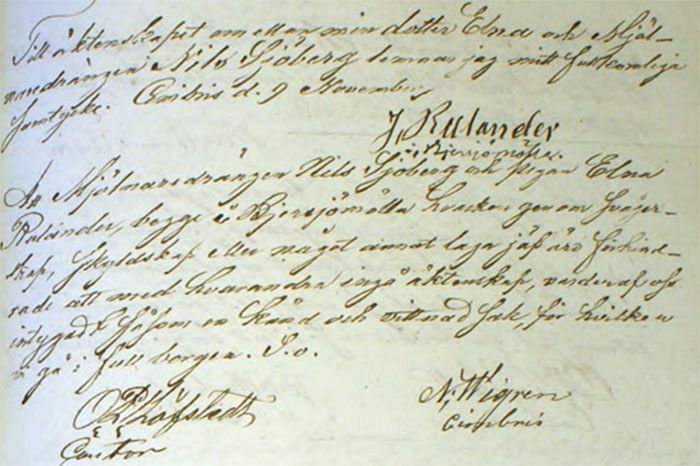 Till äktenskapet emellan min dotter Elna och Mjöl-
naredrängen Nils Sjöberg lemnar jag mitt fullkomliga
samtycke. Cimbris d. 9 November
J, Rulander
i Bjersjömölla.
At Mjölnaredrängen Nils Sjöberg och pigan Elna
Rulander, begge i Bjersjömölla hvarken genom svåger-
skap, skyldskap eller något annat laga jäf äro förhind-
rade att med hvarandra ingå äktenskap, varder af oss
intygadt såsom en känd och vittnad sak, för hvilken
vi gå i full borgen. S.o.
Löfstedt N, Wigren
Cantor Cimbris